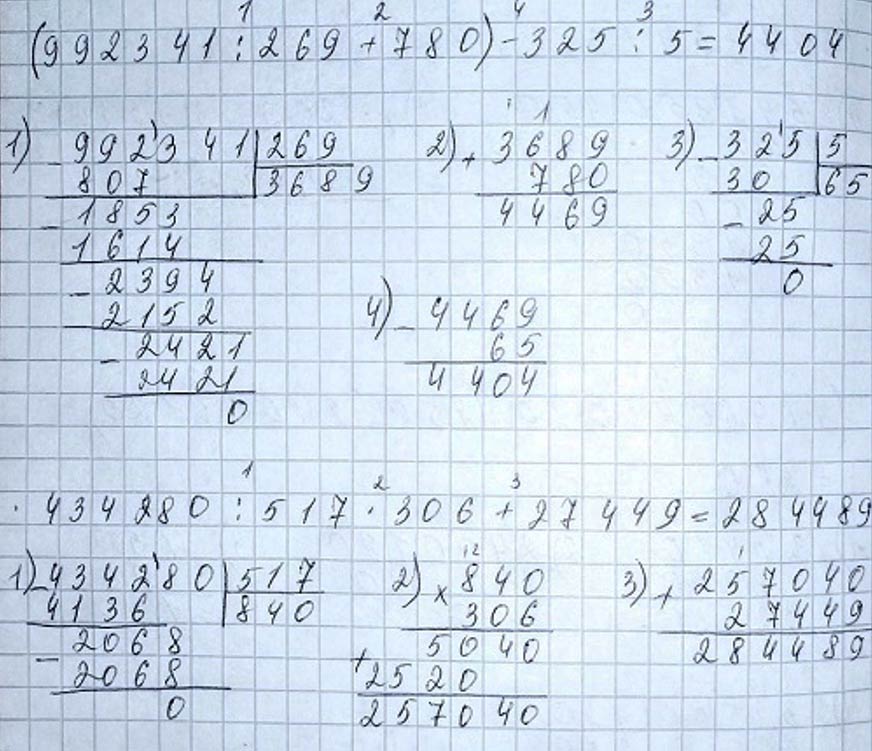 1 2 4 3
(992341:269+780)-325:5=4404
1) -992341 269 2) + 3689 3) -325 5
807 3689 780 30 65
-1853 4469 -25
1614 25
-2394 4) -4469 0
2152 65
-2421 4404
2421
0
1 2 3
434280:517·306+27449=284489
1) -434280 517 2) × 840 3) + 257040
4136 840 306 27449
-2068 5040 284489
2068 +2520
0 257040